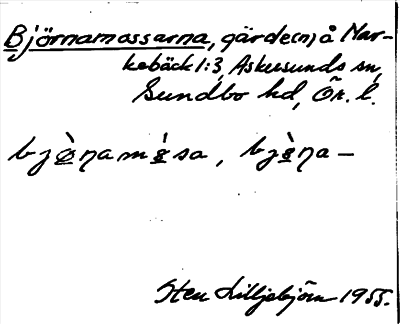 Björnamossarna, gärde(n) å Mar-
kebäck 1:3, Askersunds sn,
Sundbo hd, Ör. l.
Sten Lilljebjörn 1955.